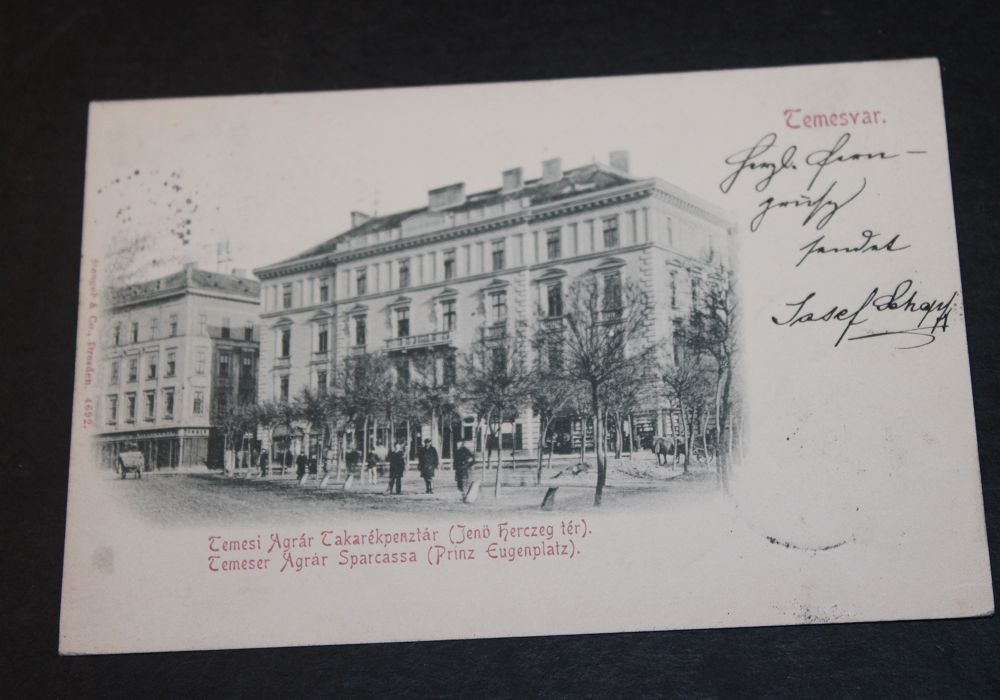 Temesvar.
Herzl. Fern-
grüße
sendet
Josef Schapf
Stengel & Co., Dresden. 4692.
Temesi Agrár Takarékpenztár (Jenö Herczeg tér).
Temeser Agrár Sparcassa (Prinz Eugenplatz).